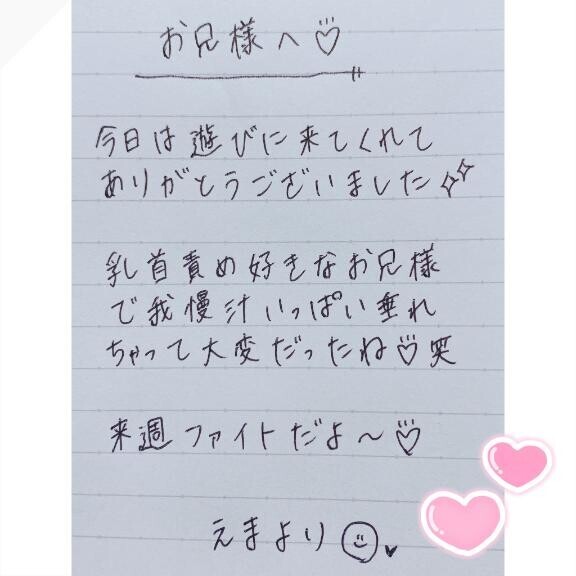 お兄様へ♡
今日は遊びに来てくれて
ありがとうございました✧✧
乳首責め好きなお兄様
で我慢汁いっぱい垂れ
ちゃって大変だったね♡笑
来週ファイトだよ〜♡
えまより☺♥